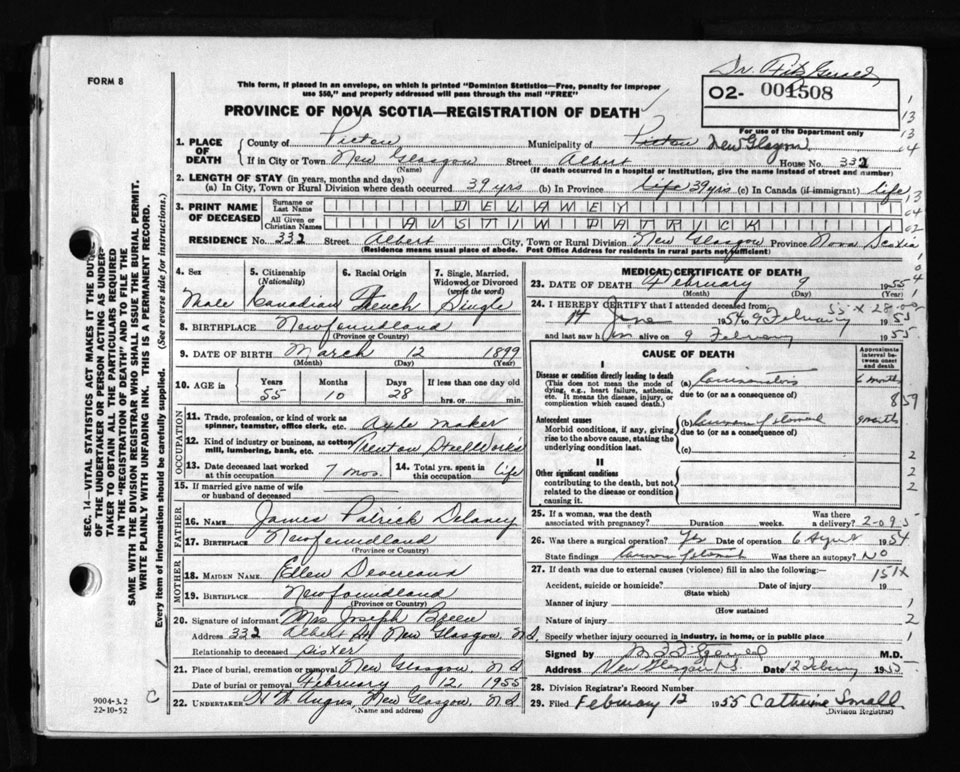 FORM 8
This form, if placed in an envelope, on which is printed "Dominion Statistics—Free, penalty for improper
use $50," and properly addressed will pass through the mail "FREE"
Dr. Fitz Gerald
02- 001508
For use of the Department only
PROVINCE OF NOVA SCOTIA—REGISTRATION OF DEATH
1. PLACE OF DEATH
County of Pictou Municipality of Pictou New Glasgow
If in City or Town New Glasgow Street Albert House No. 332
(Name) (If death occurred in a hospital or institution, give the name instead of street and number)
2. LENGTH OF STAY (in years, months and days)
(a) In City, Town or Rural Division where death occurred 39 yrs (b) In Province life 39 yrs (c) In Canada (if immigrant) life
3. PRINT NAME OF DECEASED
Surname or Last Name DELANEY
All Given or Christian Names AUSTIN PATRICK
RESIDENCE No. 332 Street Albert City, Town or Rural Division New Glasgow Province Nova Scotia
(Residence means usual place of abode. Post Office Address for residents in rural parts not sufficient)
4. Sex Male
5. Citizenship (Nationality) Canadian
6. Racial Origin French
7. Single, Married, Widowed or Divorced (write the word) Single
8. BIRTHPLACE Newfoundland
(Province or Country)
9. DATE OF BIRTH March 12 1899
(Month) (Day) (Year)
10. AGE in Years 55 Months 10 Days 28 If less than one day old
hrs. or min.
OCCUPATION
11. Trade, profession, or kind of work as
spinner, teamster, office clerk, etc. Axle Maker
12. Kind of industry or business, as cotton
mill, lumbering, bank, etc. Trenton Steel Works
13. Date deceased last worked
at this occupation 7 mos.
14. Total yrs. spent in
this occupation life
15. If married give name of wife
or husband of deceased
FATHER
16. NAME James Patrick Delaney
17. BIRTHPLACE Newfoundland
(Province or Country)
MOTHER
18. MAIDEN NAME Ellen Devereaux
19. BIRTHPLACE Newfoundland
(Province or Country)
20. Signature of informant Mrs Joseph Breen
Address 332 Albert St. New Glasgow, N.S.
Relationship to deceased sister
21. Place of burial, cremation or removal New Glasgow, N S
Date of burial or removal February 12, 1955
22. UNDERTAKER H W Angus, New Glasgow, N S
(Name and address)
MEDICAL CERTIFICATE OF DEATH
23. DATE OF DEATH February 9 1955
(Month) (Day) (Year)
24. I HEREBY CERTIFY that I attended deceased from:
14 June 1954 to 9 February 1955
and last saw him alive on 9 February 1955
CAUSE OF DEATH
Approximate interval between onset and death
I
Disease or condition directly leading to death
(This does not mean the mode of
dying, e.g., heart failure, asthenia,
etc. It means the disease, injury, or
complication which caused death.)
(a) 6 months
due to (or as a consequence of)
859
Antecedent causes
Morbid conditions, if any, giving
rise to the above cause, stating the
underlying condition last.
(b) months
due to (or as a consequence of)
(c)
II
Other significant conditions
contributing to the death, but not
related to the disease or condition
causing it.
25. If a woman, was the death
associated with pregnancy? Duration weeks. Was there
a delivery? 2-09-5
26. Was there a surgical operation? Yes Date of operation 6 August 1954
State findings Was there an autopsy? No
27. If death was due to external causes (violence) fill in also the following:—
151X
Accident, suicide or homicide? Date of injury 19
(State which)
Manner of injury
(How sustained
Nature of injury
Specify whether injury occurred in industry, in home, or in public place
Signed by M.D.
Address New Glasgow N S Date 12 February 1955
28. Division Registrar's Record Number
29. Filed February 12 1955 Catherine Small
(Division Registrar)
SEC. 14—VITAL STATISTICS ACT MAKES IT THE DUTY
OF THE UNDERTAKER OR PERSON ACTING AS UNDER-
TAKER TO OBTAIN ALL THE PARTICULARS REQUIRED
IN THE "REGISTRATION OF DEATH" AND TO FILE THE
SAME WITH THE DIVISION REGISTRAR WHO SHALL ISSUE THE BURIAL PERMIT.
WRITE PLAINLY WITH UNFADING INK. THIS IS A PERMANENT RECORD.
Every item of Information should be carefully supplied. (See reverse side for instructions.)
9004-3.2
22-10-52
C